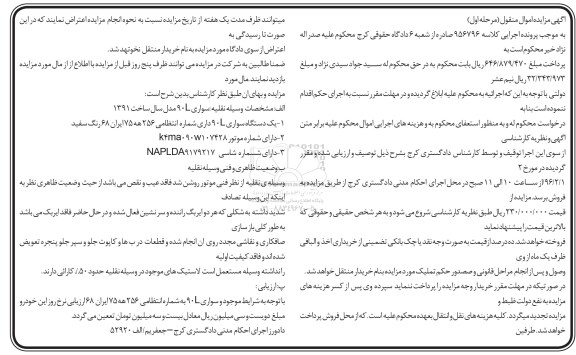 آگهی مزایده اموال منقول (مرحله اول)
به موجب پرونده اجرایی کلاسه ۹۵۶۷۹۶ صادره از شعبه ۶ دادگاه حقوقی کرج محکوم علیه صدر اله
نژاد خبیر محکوم است به
پرداخت مبلغ ۶۴۶/۸۷۹/۴۷۰ ریال بابت محکوم به در حق محکوم له سید جواد سیدی نژاد و مبلغ
۳۲/۳۴۳/۹۷۳ ریال نیم عشر
دولتی با توجه به این که اجرائیه به محکوم علیه ابلاغ گردیده و در مهلت مقرر نسبت به اجرای حکم اقدام
ننموده است بنا به
درخواست محکوم له و به منظور استیفای محکوم به و هزینه های اجرایی اموال محکوم علیه برابر متن
آگهی و نظریه کارشناسی
از سوی این اجرا توقیف و توسط کارشناس دادگستری کرج بشرح ذیل توصیف و ارزیابی شده و مقرر
گردیده در مورخ ۲
۹۶/۲/۱ از ساعت ۱۰ الی ۱۱ صبح در محل اجرای احکام مدنی دادگستری کرج از طریق مزایده به
فروش برسد. مزایده از
قیمت ۲۳۰/۰۰۰/۰۰۰ ریال طبق نظریه کارشناسی شروع می شود و به هر شخص حقیقی و حقوقی که
بالاترین قیمت را پیشنهاد نماید
فروخته خواهد شد. ده درصد از قیمت به صورت وجه نقد یا چک بانکی تضمینی از خریداری اخذ و الباقی
ظرف یک ماه از وی
وصول و پس از انجام مراحل قانونی و صدور حکم تملیک مورد مزایده بنام خریدار منتقل خواهد شد.
در صورتیکه در مهلت مقرر خریدار وجه مزایده را پرداخت ننماید سپرده وی پس از کسر هزینه های
مزایده به نفع دولت ضبط و
مزایده تجدید میگردد. کلیه هزینه های نقل و انتقال بعهده محکوم علیه است. که از محل فروش پرداخت
خواهد شد. طرفین
میتوانند ظرف مدت یک هفته از تاریخ مزایده نسبت به نحوه انجام مزایده اعتراض نمایند که در این
صورت تا رسیدگی به
اعتراض از سوی دادگاه مورد مزایده به نام خریدار منتقل نخواهد شد.
ضمنا طالبین به شرکت در مزایده می توانند ظرف پنج روز قبل از مزایده با اطلاع از از مال مورد مزایده
بازدید نمایند. مال مورد
مزایده و بهای ان طبق نظر کارشناس بدین شرح است:
الف: مشخصات وسیله نقلیه: سواری L۹۰ مدل سال ساخت ۱۳۹۱
۱-یک دستگاه سواری L۹۰ داری شماره انتظامی ۲۵۶ ه ۷۵ ایران ۶۸ رنگ سفید
۲-دارای شماره موتور k۴ma۰۹۰w۱۰۷۴۲۸
۳-دارای شماره شاسی NAPLDA۹۱۷۹۲۱۷
ب-وضعیت ظاهری و فنی وسیله نقلیه
وسیله ی نقلیه از نظر فنی موتور روشن شد فاقد عیب و نقص می باشد از حیث وضعیت ظاهری نظر به
اینکه این وسیله تصادف
شدید داشته به شکلی که هر دو ایربگ راننده و سرنشین فعال شده و در حال حاضر فاقد ایربگ می باشد
به طور کلی باز سازی
صافکاری و نقاشی مجدد روی ان انجام شده و قطعات درب ها و کاپوت جلو و سپر جلو پنجره تعویض
شده اند و فاقد کیفیت اولیه
را نداشته وسیله مستعمل است لاستیک های موجود در وسیله نقلیه حدود ۵۰٪ کارائی دارند.
پ: ارزیابی:
با توجه به شرایط موجود و سواری L۹۰ به شماره انتظامی ۲۵۶ ه ۷۵ ایران ۶۸ ارزیابی نرخ روز این خودرو
مبلغ دویست و سی میلیون ریال معادل بیست و سه میلیون تومان تعیین می گردد.
دادورز اجرای احکام مدنی دادگستری کرج-جعفریم/الف ۵۲۹۲۰